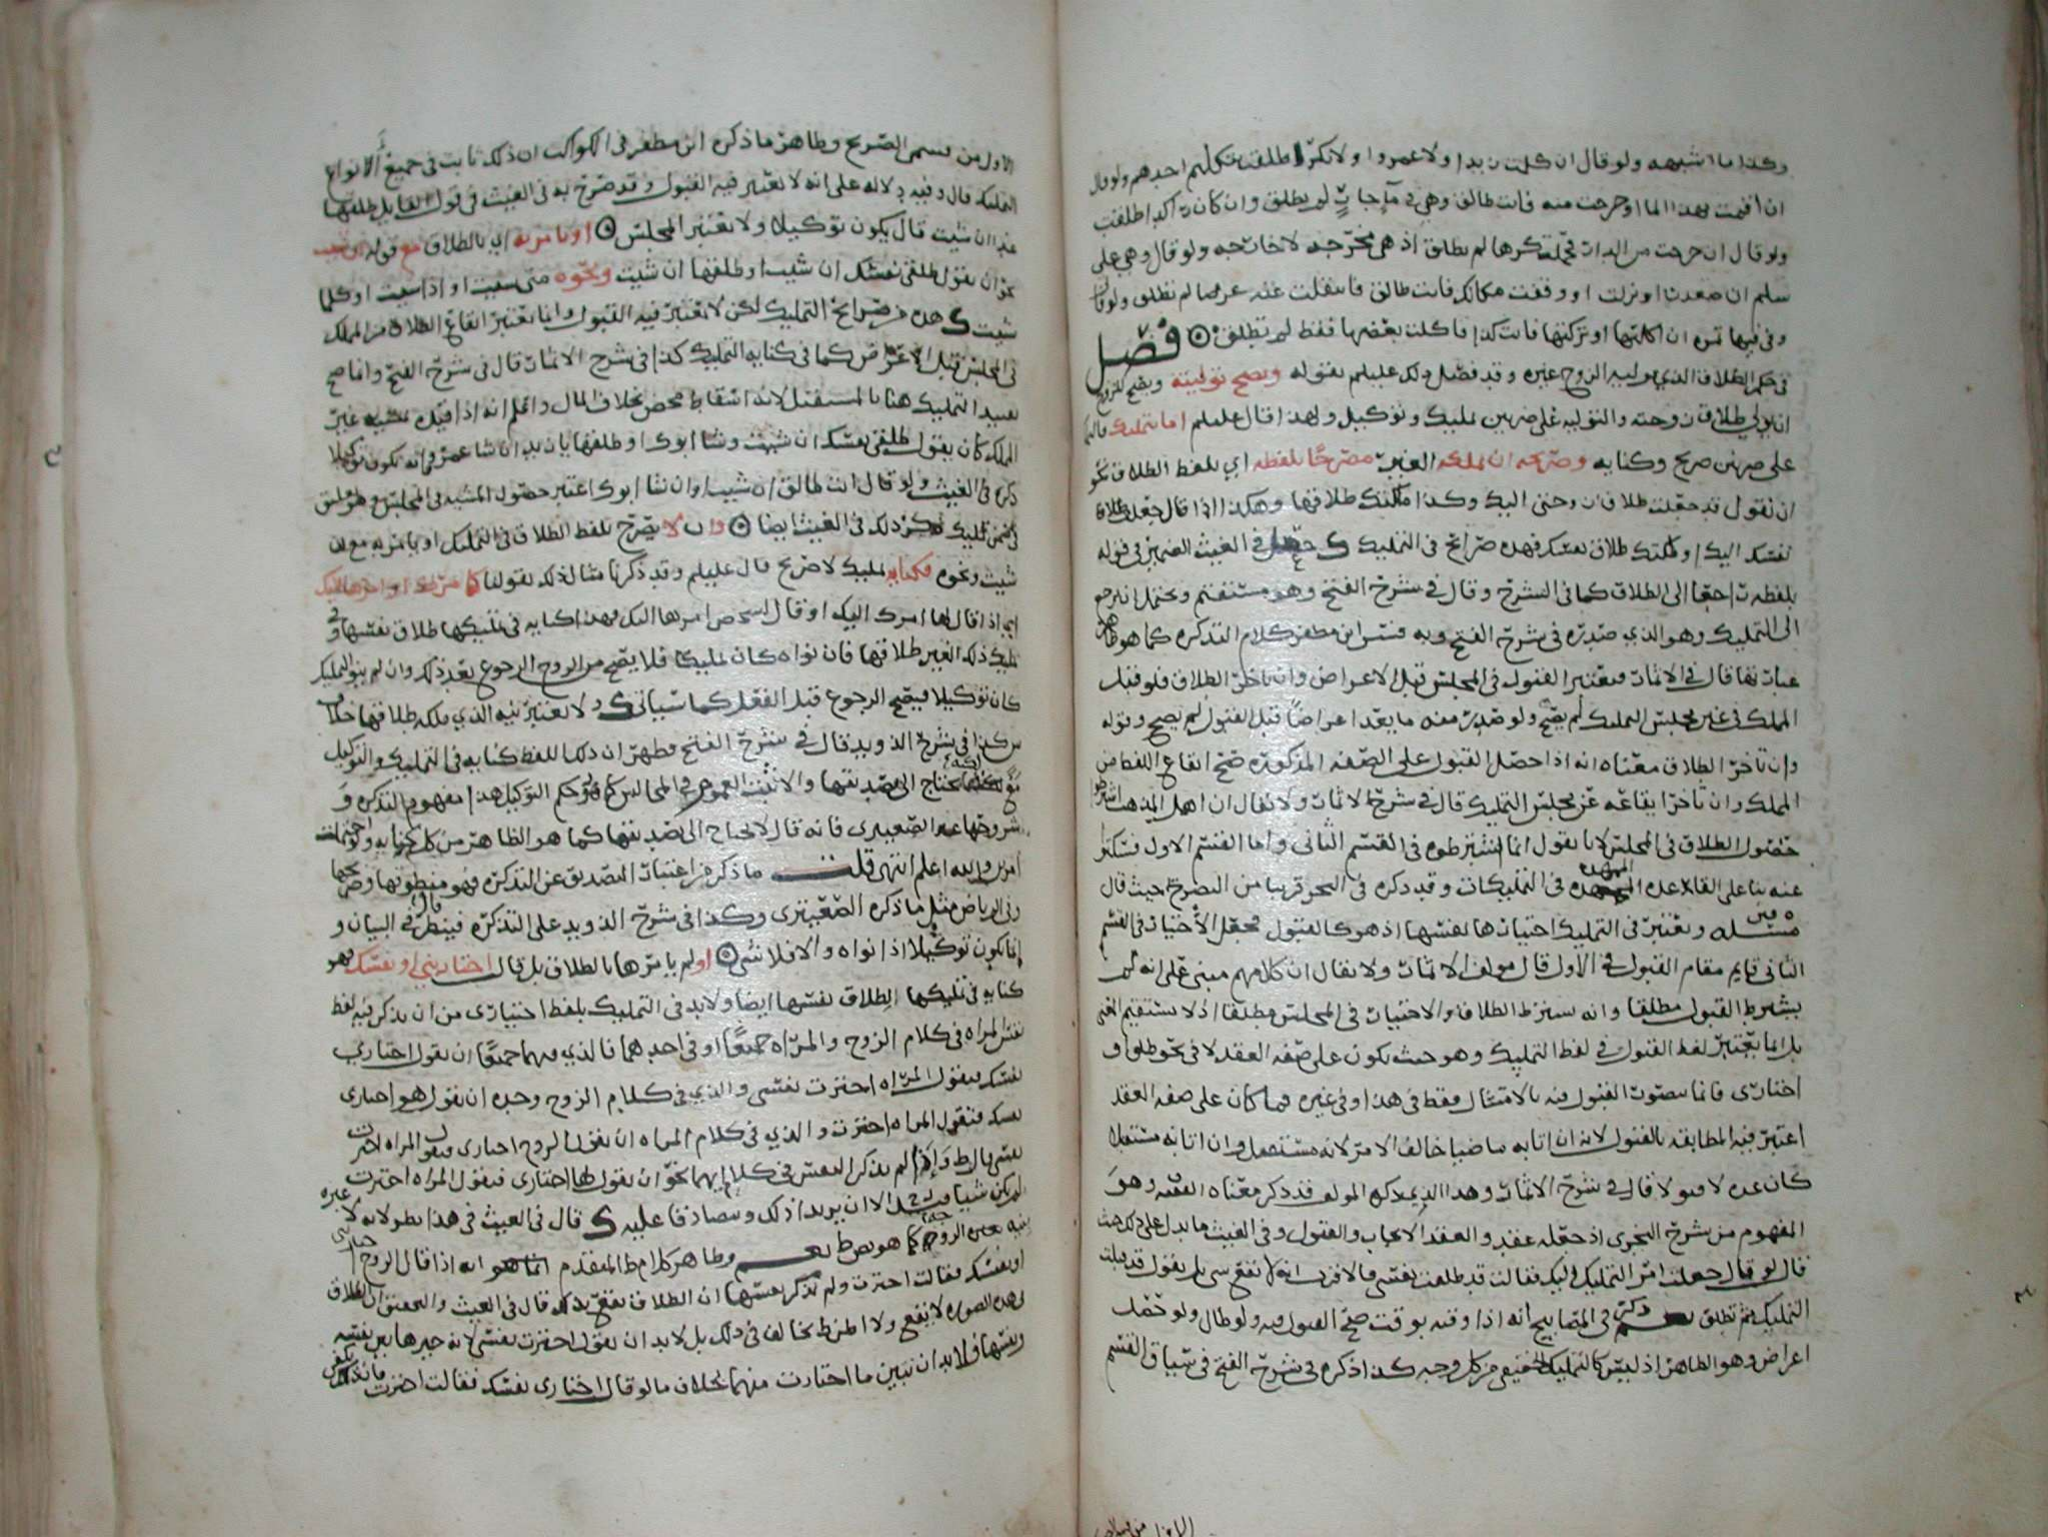 وكذا ما اشبهه ولو قال ان كلمت زيدا ولا عمروا ولا بكرا طلقت بتكليم احدهم ولو قال
ان اقمت بهذا الما او خرجت منه فانت طالق وهي في ما جار لم يطلق وان كان راكدا طلقت
ولو قال ان خرجت من الدار فحملت كرها لم تطلق اذ هي مخرجه لا خارجه ولو قال وهي على
سلم ان صعدت او نزلت او وقفت مكانك فانت طالق فانتقلت عنه عرضا لم تطلق ولو قال
وفي فيها تمره ان اكلتها او تركتها فانت كذا فاكلت بعضها فقط لم تطلق فصل
في حكم الطلاق الذي يوليه الزوج غيره وقد فصل ذلك عليلم بقوله وتصح توليته ويصح للزوج
ان يولي طلاق زوجته والتوليه على ضربين تمليك وتوكيل ولهذا قال عليلم اما بتمليك
على ضربين صريح وكنايه وصريحه ان يملكه الغير مصرحا بلفظه اي بلفظ الطلاق نحو
ان تقول قد جعلت طلاق زوجتي اليك وكذا ملكتك طلاقها وهكذا اذا قال جعلت طلاق
نفسك اليك او ملكتك طلاق نفسك فهذه صرايح في التمليك في الغيث الضمير في قوله
بلفظه راجعا الى الطلاق كما في الشرح وقال في شرح الفتح وهو مستقيم ويحتمل ان يرجع
الى التمليك وهو الذي صدره في شرح الفتح وبه فسر ابن مظفر كلام التذكره كما هو ظاهر
عبارتها قال في الاثمار ويعتبر القبول في المجلس قبل الاعراض وان تاخر الطلاق فلو قبل
المملك في غير مجلس التمليك لم يصح ولو صدر منه ما يعد اعراضا قبل القبول لم يصح وقوله
وان تاخر الطلاق معناه انه اذا حصل القبول على الصفه المذكوره صح ايقاع اللفظ من
المملك وان تاخر ايقاعه عن مجلس التمليك قال في شرح الاثمار ولا يقال ان اهل المذهب
حصول الطلاق في المجلس لانا نقول انما اشترطوه في القسم الثاني واما القسم الاول فسكتوا
عنه بنا على القاعده في التمليكات وقد ذكره في البحر قريبا من التصريح حيث قال
مسله ويعتبر في التمليك اختيارها لنفسها اذ هو كالقبول فجعل الاختيار في القسم
الثاني قايم مقام القبول في الاول قال مولف الاثمار ولا يقال ان كلامهم مبني على انه لم
يشترط القبول مطلقا وانه يشترط الطلاق والاختيار في المجلس مطلقا اذ لا يستقيم
بل انما يعتبر لفظ القبول في لفظ التمليك وهو حيث يكون على صفه العقد لا في نحو طلق او
اختاري فانما يتصور القبول فيه بالامتثال فقط في هذا وفي غيره فما كان على صفه العقد
اعتبر فيه المطابقه بالقبول لانه ان اتا به ماضيا خالف الامر لانه مستقبل وان اتا به مستقبلا
كان عده لا قبولا قال في شرح الاثمار وهذا الذي ذكره المولف قد ذكر معناه الفقيه وهو
المفهوم من شرح النجري اذ جعله عقد والعقد الايجاب والقبول وفي الغيث ما يدل على ذلك حيث
قال لو قال جعلت امر التمليك اليك فقالت قد طلقت نفسي فالاقرب انه لا يقع شي بل يقول قد قبلت
التمليك ثم تطلق ذكر في المصابيح انه اذا وقته بوقت صح القبول فيه ولو طال ولو تخلل
اعراض وهو الظاهر اذ ليس كالتمليك الحقيقي من كل وجه كذا ذكره في شرح الفتح في سياق القسم
الاول من قسمي الصريح وظاهر ما ذكره ابن مظفر في الكواكب ان ذلك ثابت في جميع الانواع
التمليك قال وفيه دلاله على انه لا يعتبر فيه القبول وقد صرح به في الغيث في قول القايل طلقها
غدا ان شيت قال يكون توكيلا ولا يعتبر المجلس او يامر به اي بالطلاق مع قوله ان شيت
نحو ان يقول طلقي نفسك ان شيت او طلقها ان شيت ونحوه متى شيت او اذا شيت او كلما
شيت فهذه من صرايح التمليك لكن لا يعتبر فيه القبول وانما يعتبر ايقاع الطلاق من المملك
في المجلس قبل الاعراض كما في كنايه التمليك كذا في شرح الاثمار قال في شرح الفتح وانما صح
تقييد التمليك هنا بالمستقبل لانه اسقاط محض بخلاف المال واعلم انه اذا قيده بمشيه غير
المملك كان يقول طلقي نفسك ان شيت وشا ابوك او طلقها يا زيد ان شا عمرو فانه يكون توكيلا
ذكره في الغيث ولو قال انت طالق ان شيت او ان شا ابوك اعتبر حصول المشيه في المجلس
ذكر ذلك في الغيث ايضا وان لا يصرح بلفظ الطلاق في التمليك او يامر به مع ان
شيت ونحوه فكنايه تمليك لا صريح قال عليلم وقد ذكرنا مثال ذلك بقولنا كامرك او امرها اليك
اي اذا قال لها امرك اليك او قال لشخص امرها اليك فهذا كنايه في تمليكها طلاق نفسها وفي
تمليك ذلك الغير طلاقها فان نواه كان تمليكا فلا يصح من الزوج الرجوع بعد ذلك وان لم ينو التمليك
كان توكيلا فيصح الرجوع قبل الفعل كما سياتي ولا يعتبر نيه الذي ملكه طلاقها خلاف
كذا في شرح الذويد قال في شرح الفتح فظهر ان ذلك اللفظ كنايه في التمليك والتوكيل
يحتاج الى تصديقها في المجالس كما هو حكم التوكيل هذا مفهوم التذكره و
شروحها غير الصعيتري فانه قال لا يحتاج الى تصديقها كما هو الظاهر من كل كنايه ولو احتملت
امرين والله اعلم انتهى قلت ما ذكر من اعتبار التصديق عن التذكره فهو منطوقها وصريحها
وفي الرياض مثل ما ذكره الصعيتري وكذا في شرح الذويد على التذكره فينظر قال في البيان و
انما يكون توكيلا اذا نواه والا فلا شي او لم يامرها بالطلاق بل قال اختاريني او نفسك فهو
كنايه في تمليكها الطلاق لنفسها ايضا ولا بد في التمليك بلفظ اختياري من ان يذكر فيه لفظ
نفس المراه في كلام الزوج والمراه جميعا او في احدهما فالذي فيهما جميعا ان يقول اختاري
نفسك فتقول المراه اخترت نفسي والذي في كلام الزوج وحده ان يقول هو اختاري
نفسك فتقول المراه اخترت والذي في كلام المراه ان يقول الزوج اختاري فتقول المراه اخترت
نفسي واذا لم يذكر النفس في كلام ايهما نحو ان يقول لها اختاري فتقول المراه اخترت
لم يكن شيا الا ان يريدا ذلك ويتصادقا عليه قال في الغيث في هذا نظر لانه لا عبره
بنيه غير الزوج كما هو وظاهر كلام المتقدم انه اذا قال الزوج اختاري
او نفسك فقالت اخترت ولم تذكر نفسها ان الطلاق يقع بذلك قال في الغيث والتحقيق ان الطلاق
في هذه الصوره لا يقع بل لا بد ان تقول اخترت نفسي لانه خيرها بين نفسه
ونفسها فلا بد ان تبين ما اختارت منهما بخلاف ما لو قال اختاري نفسك فقالت اخترت